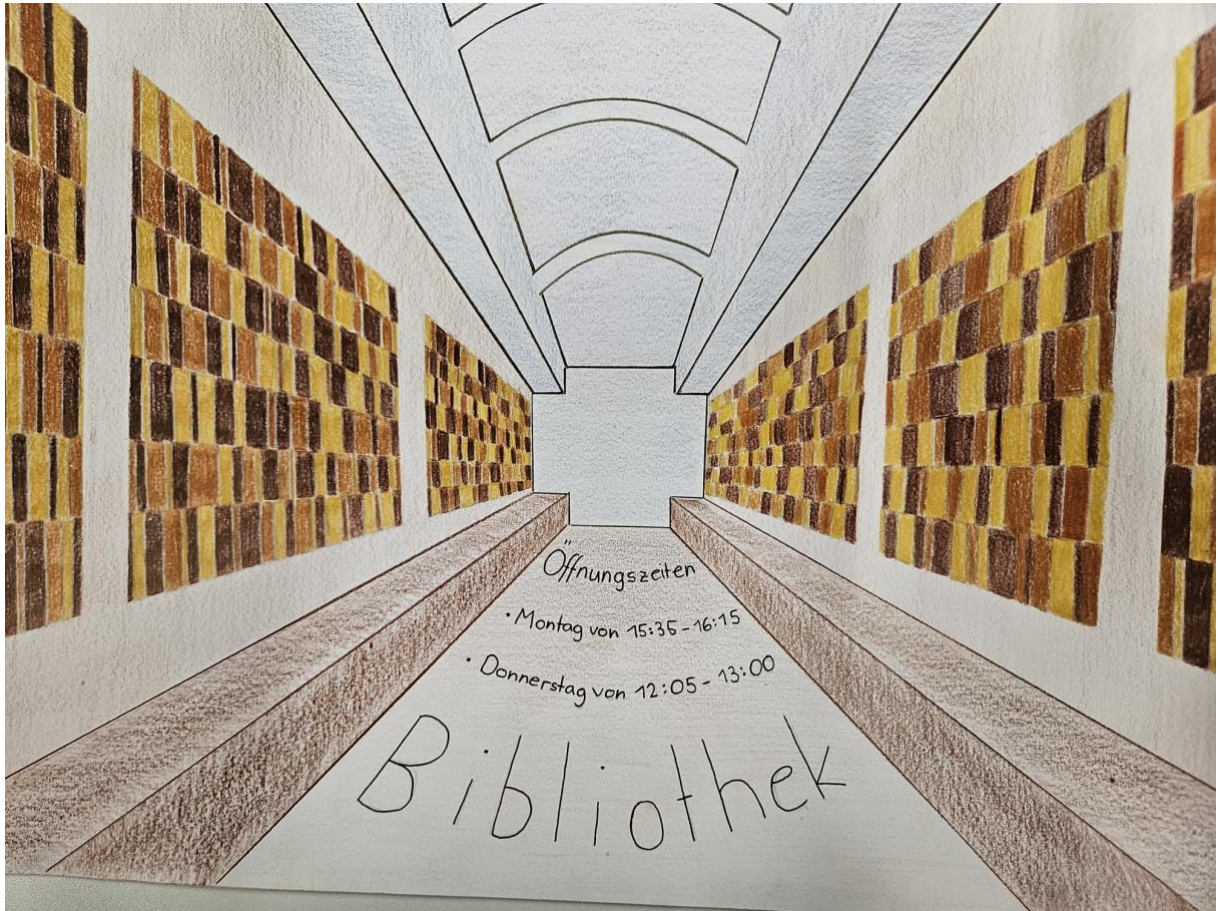 Öffnungszeiten
• Montag von 15:35 - 16:15
• Donnerstag von 12:05 - 13:00
Bibliothek